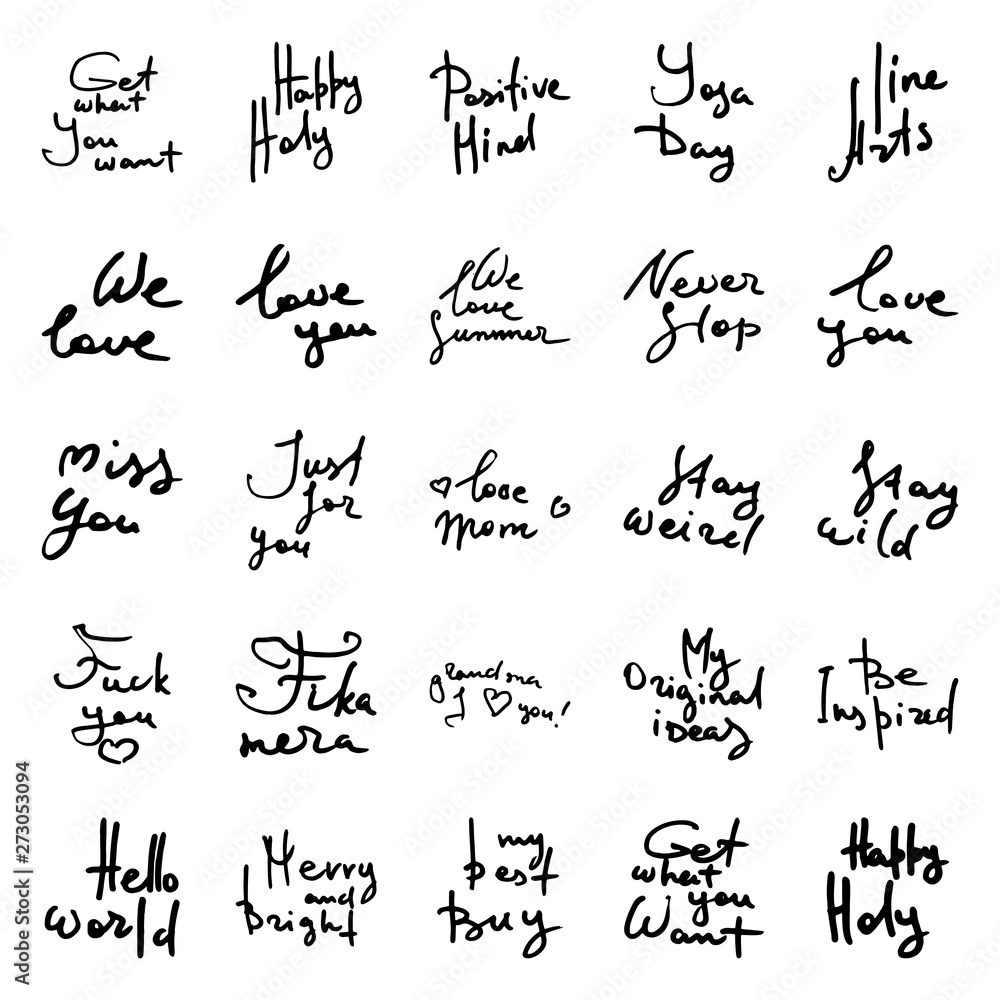 Get
what
You
want
Happy
Holy
Positive
Mind
Yoga
Day
Arts
We
love
love
you
We
love
Summer
Never
Stop
love
you
Miss
you
Just
for
you
love
Mom
Stay
weird
Stay
wild
Fuck
you
Fika
mera
grandma
I you!
My
Original
ideas
Be
Inspired
Hello
world
Merry
and
Bright
my
best
Buy
Get
what
you
Want
Happy
Holy
Adobe Stock | #273053094